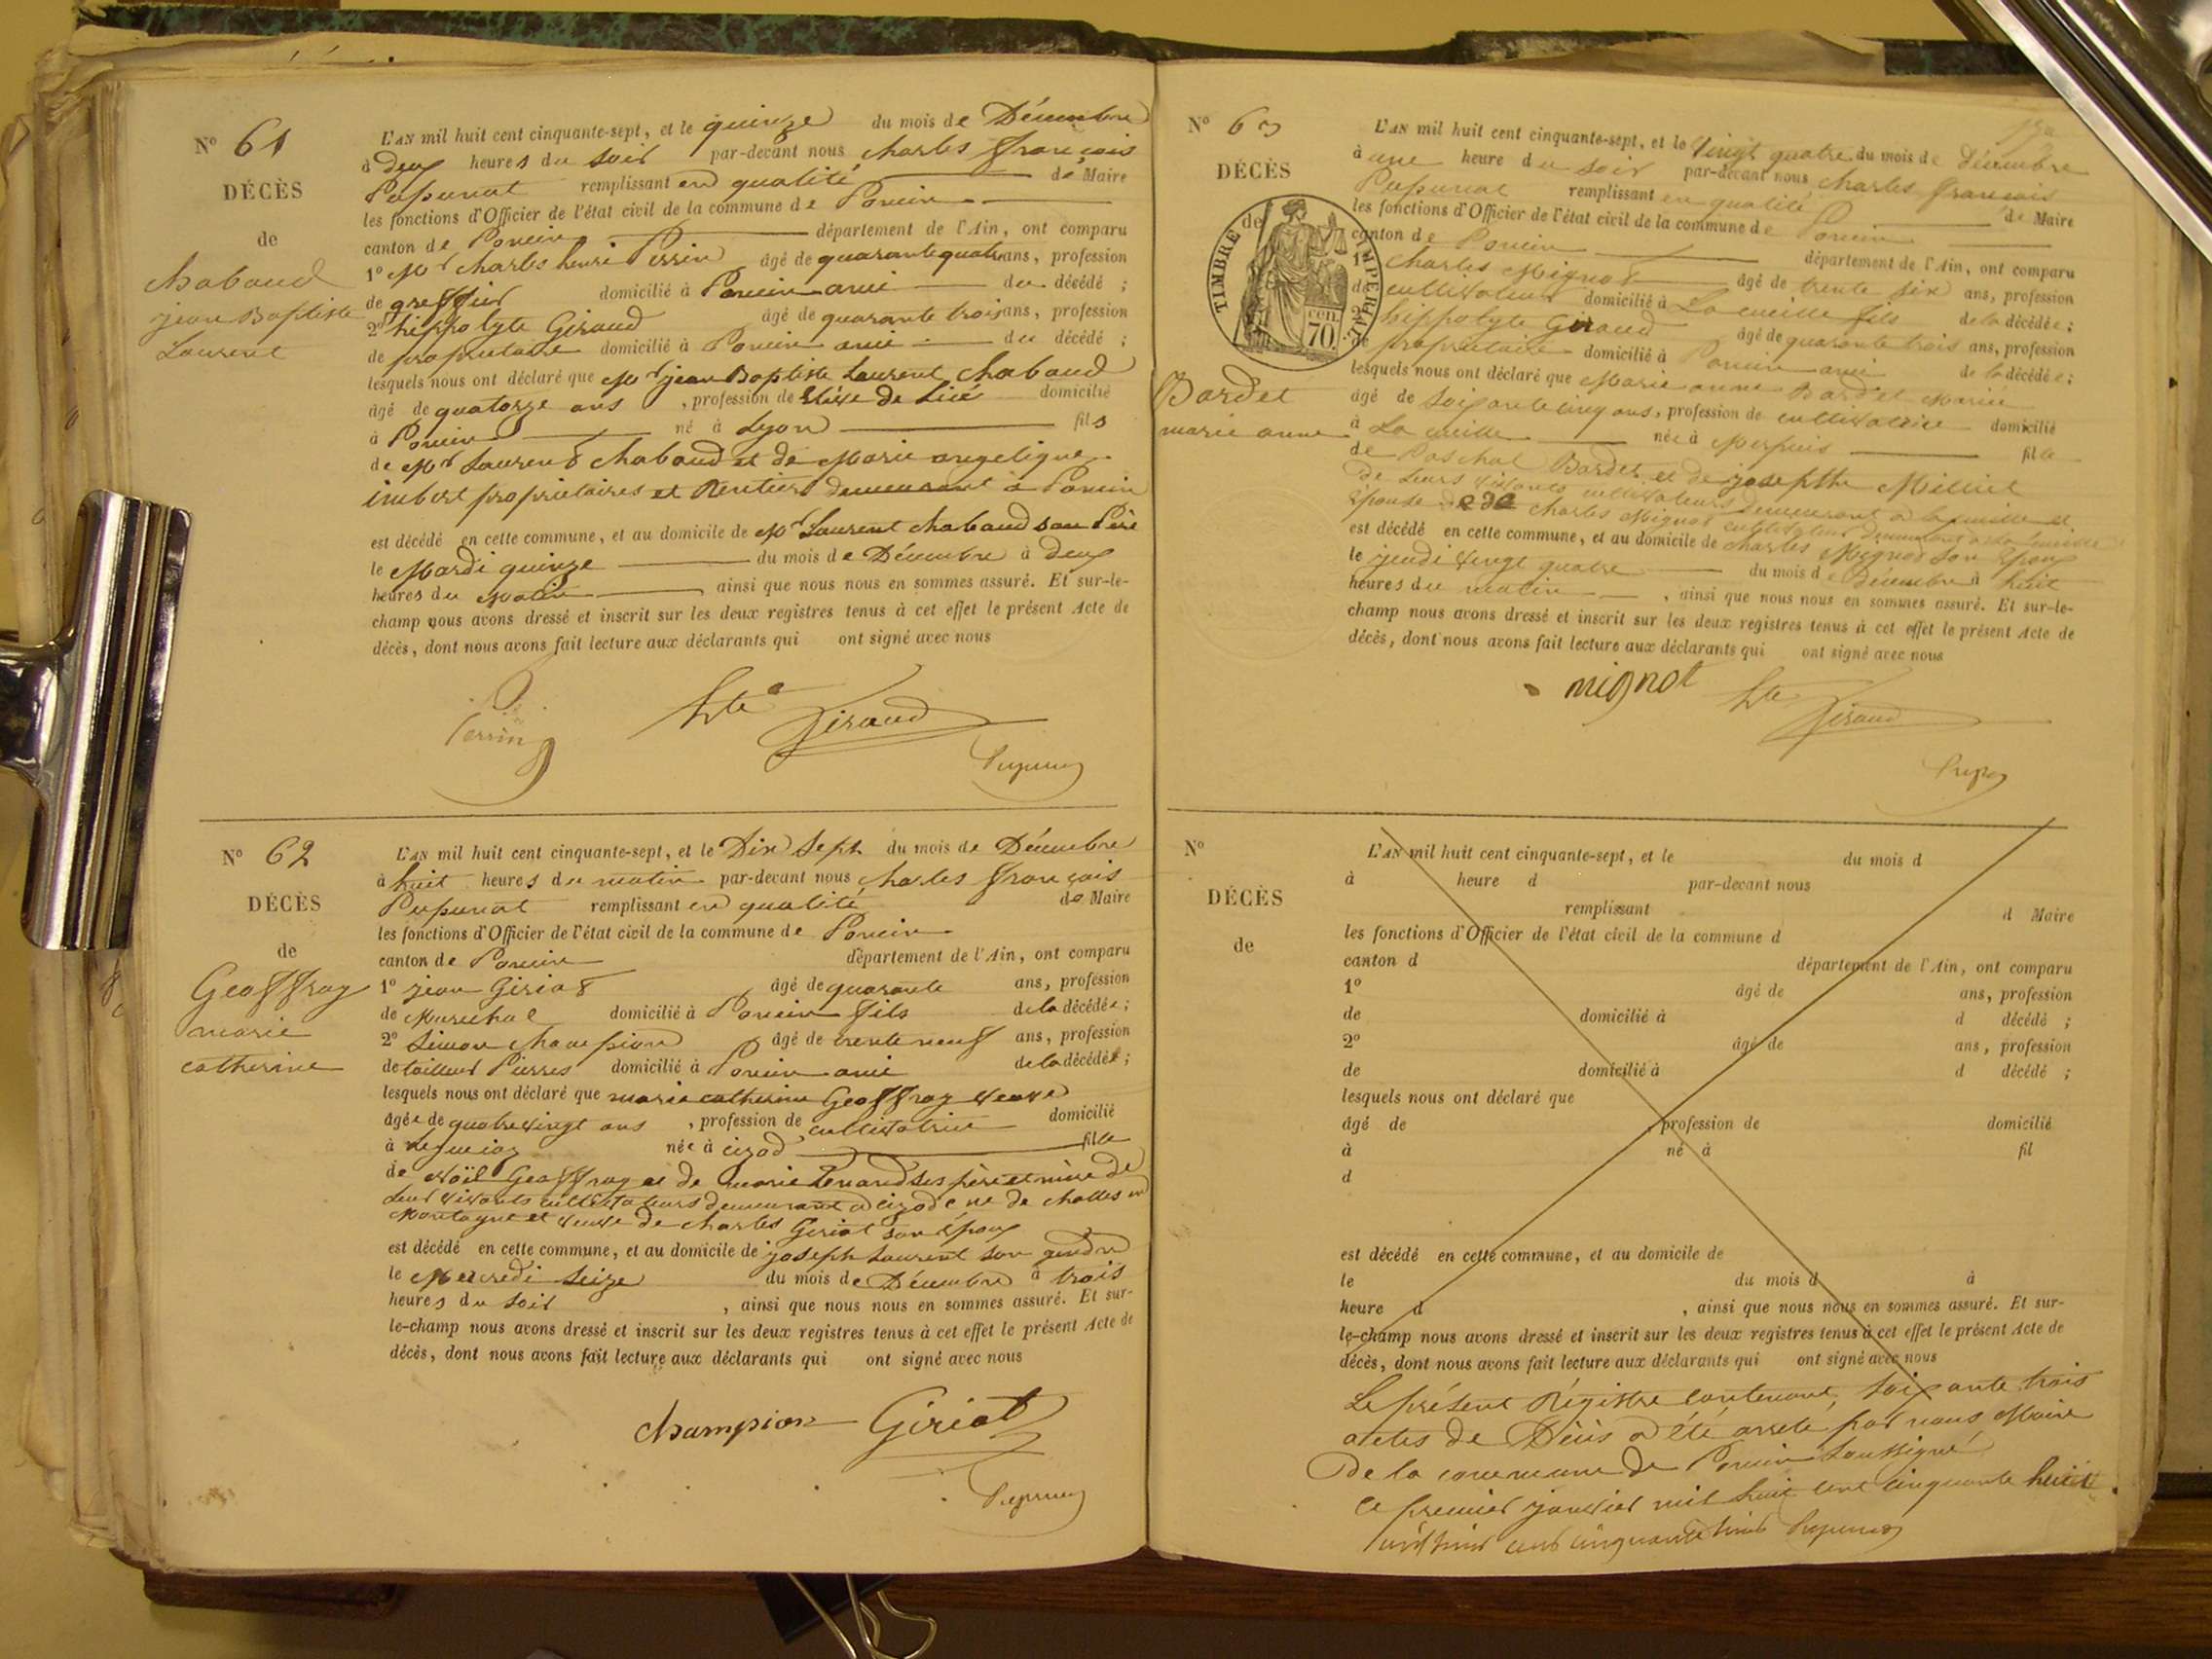 N° 61
DÉCÈS
de
Chabaud
jean Baptiste
Laurent
L'AN mil huit cent cinquante-sept, et le quinze du mois de Décembre
à deux heures du soir par-devant nous Charles François
Pupunat remplissant en qualité de Maire
les fonctions d'Officier de l'état civil de la commune de Poncin
canton de Poncin département de l'Ain, ont comparu
1° Mr Charles henri Perrin âgé de quarante quatre ans, profession
de greffier domicilié à Poncin ami du décédé ;
2° hippolyte Giraud âgé de quarante trois ans, profession
de propriétaire domicilié à Poncin ami du décédé ;
lesquels nous ont déclaré que Mr jean Baptiste Laurent Chabaud
âgé de quatorze ans , profession de Elève de domicilié
à Poncin né à Lyon fils
de Mr Laurent Chabaud et de Marie angelique
imbert propriétaires et Rentiers demeurant à Poncin
est décédé en cette commune, et au domicile de Mr Laurent Chabaud son Père
le Mardi quinze du mois de Décembre à deux
heures du Matin ainsi que nous nous en sommes assuré. Et sur-le-
champ nous avons dressé et inscrit sur les deux registres tenus à cet effet le présent Acte de
décès, dont nous avons fait lecture aux déclarants qui ont signé avec nous
Perrin Hte Giraud
Pupunat
N° 62
DÉCÈS
de
Geoffray
marie
catherine
L'AN mil huit cent cinquante-sept, et le Dix Sept du mois de Décembre
à huit heures du matin par-devant nous Charles François
Pupunat remplissant en qualité de Maire
les fonctions d'Officier de l'état civil de la commune de Poncin
canton de Poncin département de l'Ain, ont comparu
1° jean Giriat âgé de quarante ans, profession
de Marechal domicilié à Poncin fils de la décédée ;
2° Simon Champion âgé de trente neuf ans, profession
de tailleur Pierres domicilié à Poncin ami de la décédée ;
lesquels nous ont déclaré que marie catherine Geoffray veuve
âgée de quatre vingt ans , profession de cultivatrice domicilié
à née à cizod fille
de Noël Geoffray et de marie ses père et mère de
Leur vivants cultivateurs demeurant à cizod cne de challes en
Montagne et veuve de charles Giriat son époux
est décédé en cette commune, et au domicile de joseph Laurent son gendre
le Mercredi Seize du mois de Décembre à trois
heures du soir , ainsi que nous nous en sommes assuré. Et sur-
le-champ nous avons dressé et inscrit sur les deux registres tenus à cet effet le présent Acte de
décès, dont nous avons fait lecture aux déclarants qui ont signé avec nous
Champion Giriat
Pupunat
N° 63
DÉCÈS
de
TIMBRE IMPERIAL
cen
70.
Bardet
marie anne
L'AN mil huit cent cinquante-sept, et le Vingt quatre du mois de décembre
à une heure du soir par-devant nous Charles François
Pupunat remplissant en qualité de Maire
les fonctions d'Officier de l'état civil de la commune de Poncin
canton de Poncin département de l'Ain, ont comparu
1° Charles Mignot âgé de trente six ans, profession
de cultivateur domicilié à La cueille fils de la décédée ;
2° hippolyte Giraud âgé de quarante trois ans, profession
de propriétaire domicilié à Poncin ami de la décédée ;
lesquels nous ont déclaré que Marie anne Bardet Mariée
âgé de Soixante cinq ans, profession de cultivatrice domicilié
à La cueille née à Merpuis fille
de Paschal Bardet et de josephte Milliet
De Leurs vivants cultivateurs demeurant à la cueille et
Epouse de Charles Mignot cultivateur demeurant à la cueille
est décédé en cette commune, et au domicile de Charles Mignot son Epoux
le jeudi vingt quatre du mois de Décembre à huit
heures du matin , ainsi que nous nous en sommes assuré. Et sur-le-
champ nous avons dressé et inscrit sur les deux registres tenus à cet effet le présent Acte de
décès, dont nous avons fait lecture aux déclarants qui ont signé avec nous
mignot Hte Giraud
N°
DÉCÈS
de
L'AN mil huit cent cinquante-sept, et le du mois d
à heure d par-devant nous
remplissant d Maire
les fonctions d'Officier de l'état civil de la commune d
canton d département de l'Ain, ont comparu
1° âgé de ans, profession
de domicilié à d décédé ;
2° âgé de ans, profession
de domicilié à d décédé ;
lesquels nous ont déclaré que
âgé de , profession de domicilié
à né à fil
d
est décédé en cette commune, et au domicile de
le du mois d à
heure d , ainsi que nous nous en sommes assuré. Et sur-
le-champ nous avons dressé et inscrit sur les deux registres tenus à cet effet le présent Acte de
décès, dont nous avons fait lecture aux déclarants qui ont signé avec nous
Le présent Régistre contenant, Soixante trois
actes de Décès a été arrêté par nous Maire
De la commune de Poncin Soussigné
Ce premier janvier mil huit cent cinquante huit
mil huit cent cinquante huit Pupunat